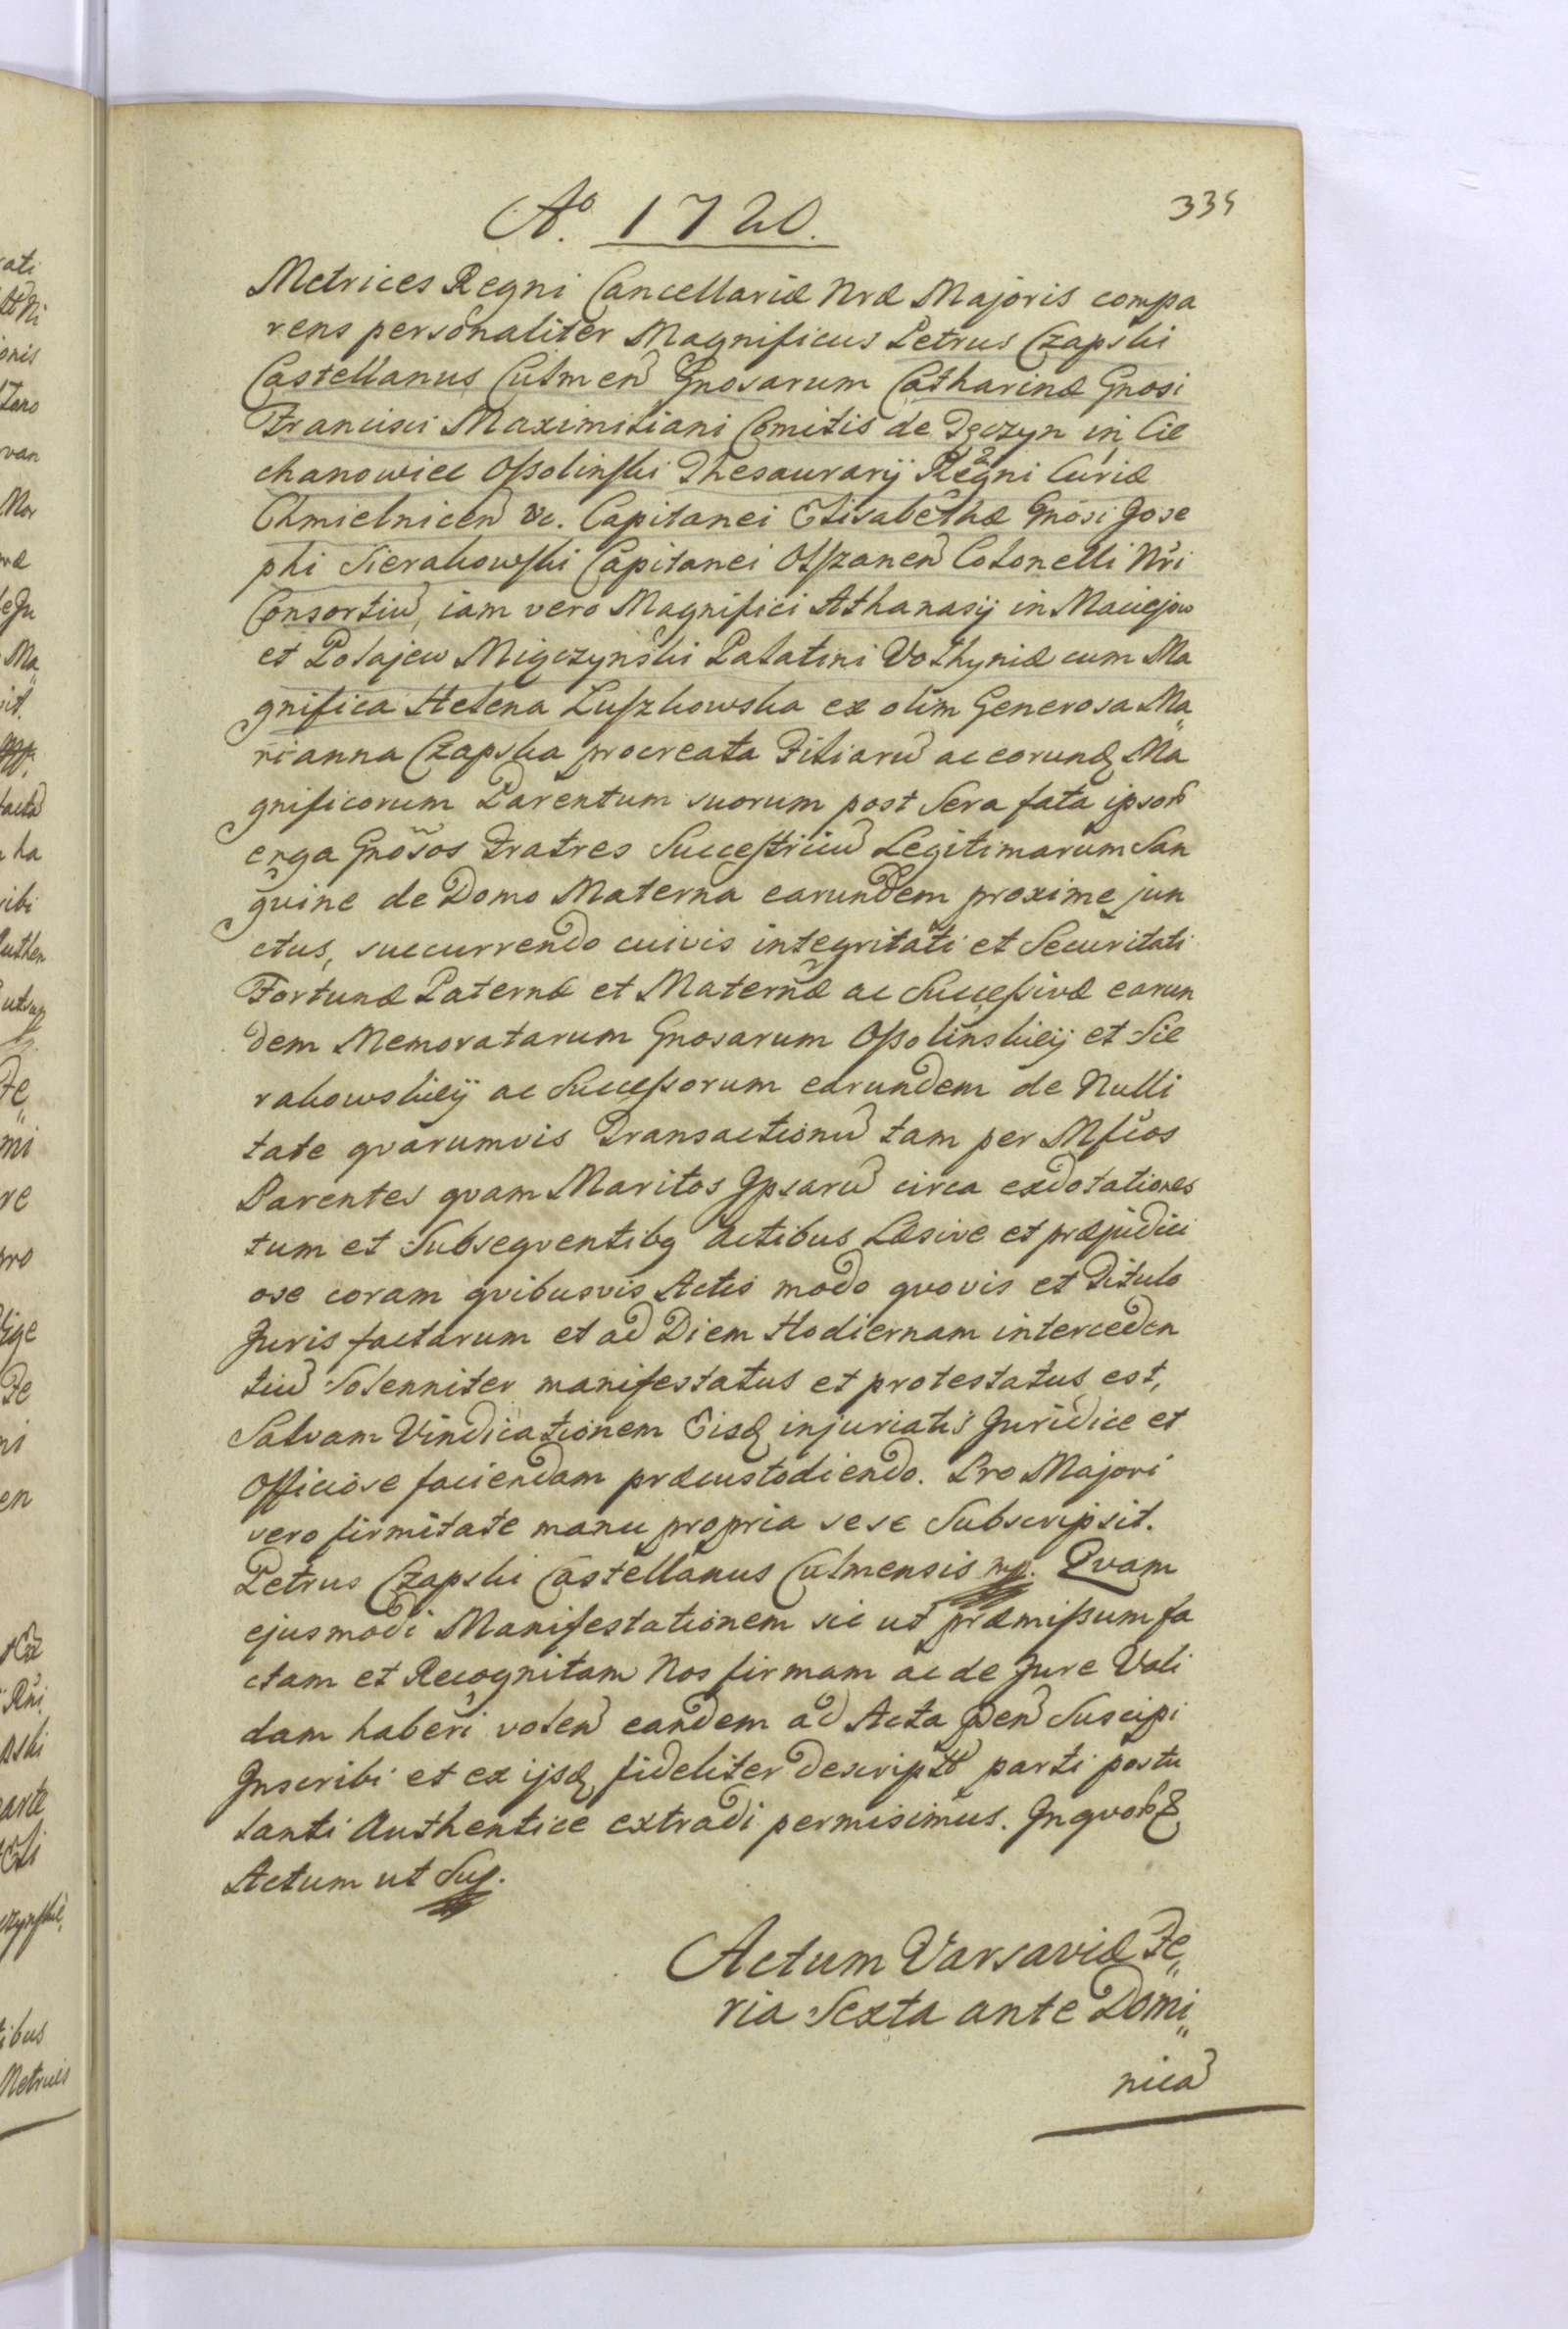 Aº. 1720.
335
Metrices Regni Cancellariæ Nræ Majoris compa
rens personaliter Magnificus Petrus Czapski
Castellanus Culmen Gnosarum Catharinæ Gnosi
Francisci Maximiliani Comitis de Tęczyn in Cie
chanowiec Ossolinski Thesaurarij Regni Curiæ
Chmielnicen &c. Capitanei Elisabethæ Gnosi Jose
phi Sierakowski Capitanei Olszanen Colonelli Nri
Consortiu, iam vero Magnifici Athanasij in Maciejow
et Polajew Miączynski Palatini Volhyniæ cum Ma
gnifica Helena Luszkowska ex olim Generosa Ma„
rianna Czapska procreata Filiaru ac eorunq Ma
gnificorum Parentum suorum post Sera fata ipsor
erga Gnosos Fratres Successtriciu Legitimarum San
gvine de Domo Materna earundem proxime jun
ctus, succurrendo cuivis integritati et Securitati
Fortunæ Paternæ et Maternæ ac Successivæ earun
dem Memoratarum Gnosarum Ossolinskiey et Sie
rakowskiey ac Successorum earundem de Nulli
tate qvarumvis Transactionu tam per Mficos
Parentes qvam Maritos Ipsaru circa exdotationes
tum et Subseqventibq actibus Læsive et præjudici
ose coram qvibusvis Actis modo qvovis et Titulo
Juris factarum et ad Diem Hodiernam interceden
tiu Solenniter manifestatus et protestatus est,
Salvam Vindicationem Eisq injuriatis Juridice et
Officiose faciendam præcustodiendo. Pro Majori
vero firmitate manu propria sese Subscripsit.
Petrus Czapski Castellanus Culmensis mp. Qvam
ejusmodi Manifestationem sic ut præmissum fa
ctam et Recognitam Nos firmam ac de Jure Vali
dam haberi volen eandem ad Acta pñ Suscipi
Inscribi et ex ijsq fideliter descript parti postu
lanti Authentice extradi permisimus. In qvor
Actum ut Sup.
Actum Varsaviæ Fe„
ria Sexta ante Domi„
nica